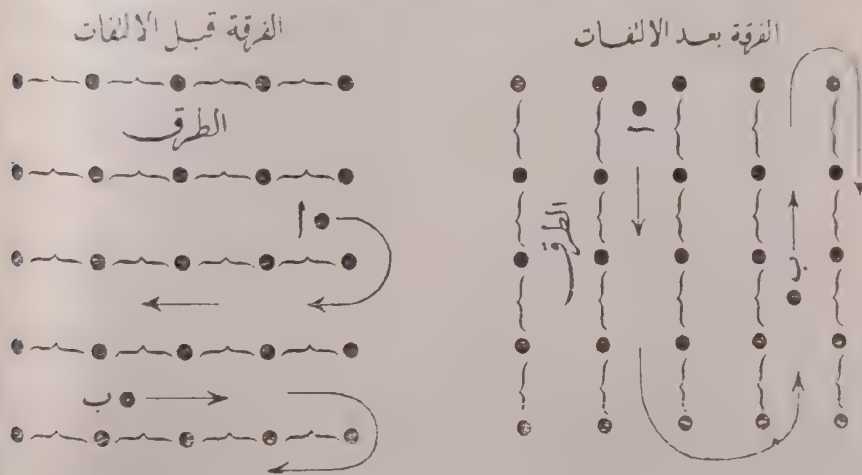 الفرقة بعد الالتفات
ا
الطرق
ب
الفرقة قبل الالتفات
الطرق
أ
ب